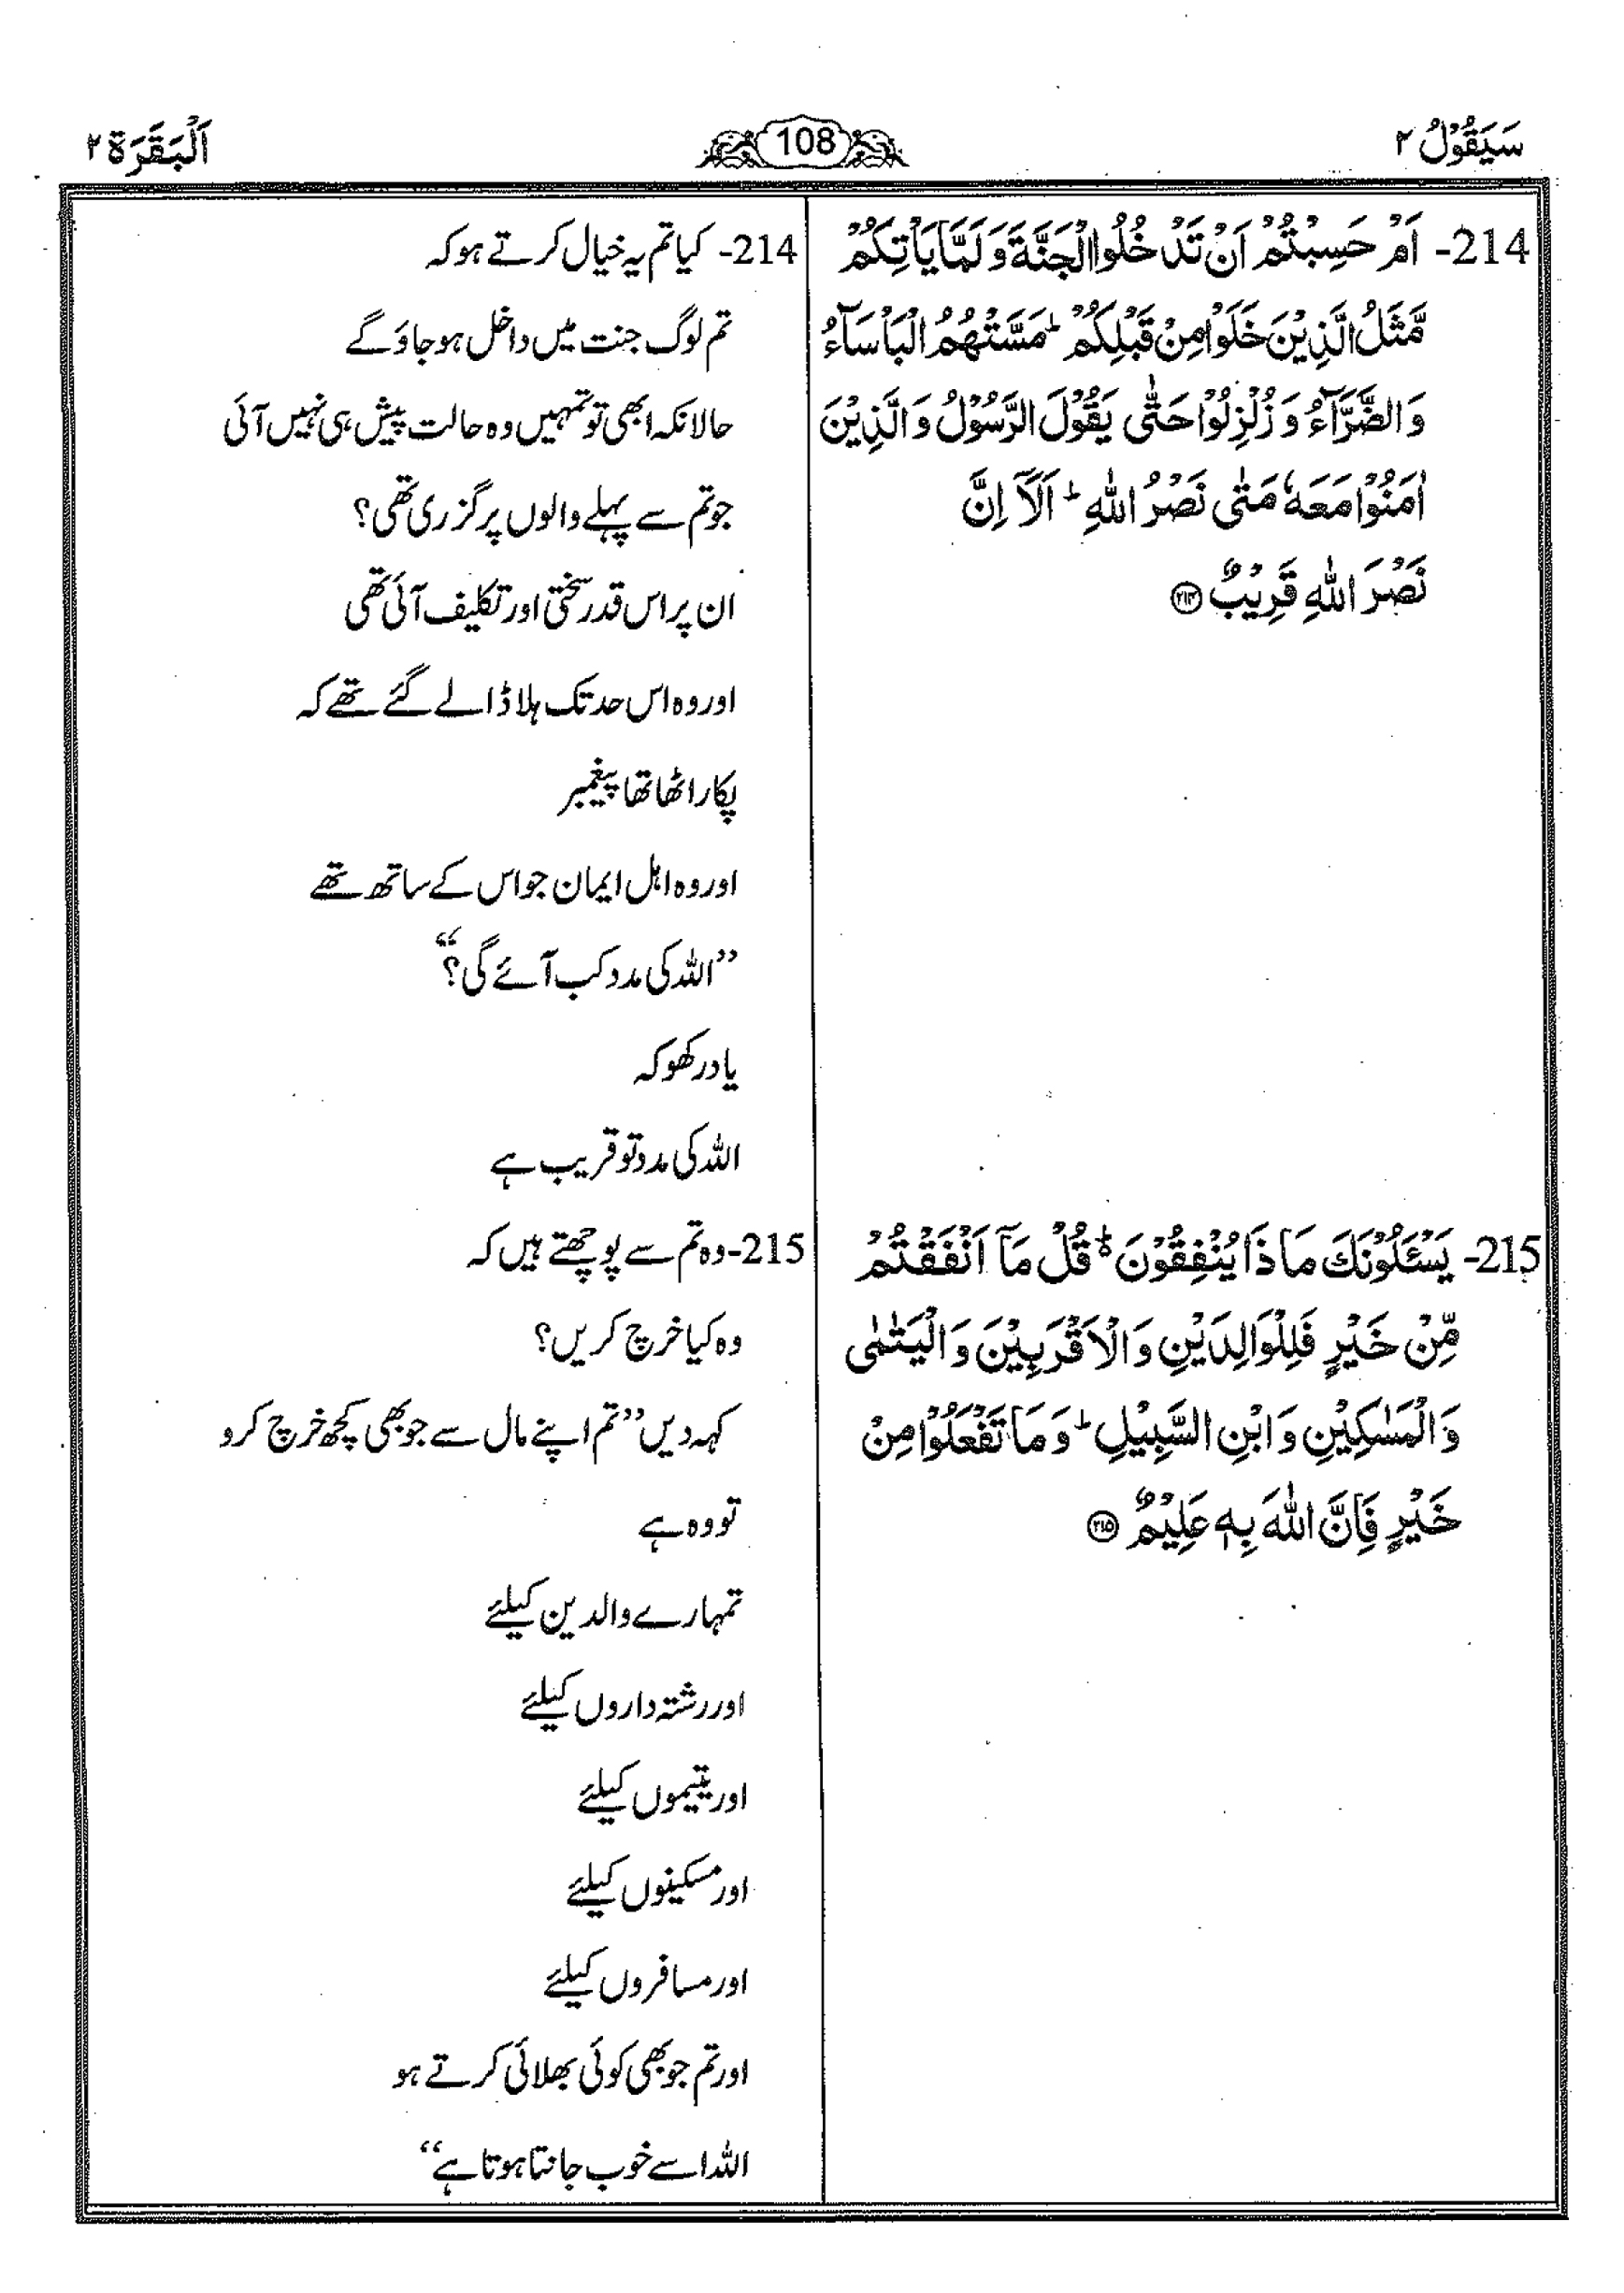 سَيَقُوْلُ ٢
108
اَلْبَقَرَة ٢
214- اَمْ حَسِبْتُمْ اَنْ تَدْخُلُوا الْجَنَّةَ وَ لَمَّا يَاْتِكُمْ
مَّثَلُ الَّذِيْنَ خَلَوْا مِنْ قَبْلِكُمْ ؕ مَسَّتْهُمُ الْبَاْسَآءُ
وَ الضَّرَّآءُ وَ زُلْزِلُوْا حَتّٰى يَقُوْلَ الرَّسُوْلُ وَ الَّذِيْنَ
اٰمَنُوْا مَعَهٗ مَتٰى نَصْرُ اللّٰهِ ؕ اَلَاۤ اِنَّ
نَصْرَ اللّٰهِ قَرِيْبٌ ﴿٢١٤﴾
214- کیا تم یہ خیال کرتے ہو کہ
تم لوگ جنت میں داخل ہو جاؤ گے
حالانکہ ابھی تو تمہیں وہ حالت پیش ہی نہیں آئی
جو تم سے پہلے والوں پر گزری تھی؟
ان پر اس قدر سختی اور تکلیف آئی تھی
اور وہ اس حد تک ہلا ڈالے گئے تھے کہ
پکار اٹھا تھا پیغمبر
اور وہ اہل ایمان جو اس کے ساتھ تھے
”اللہ کی مدد کب آئے گی؟“
یاد رکھو کہ
اللہ کی مدد تو قریب ہے
215- يَسْـَٔلُوْنَكَ مَا ذَا يُنْفِقُوْنَ ؕ۬ قُلْ مَاۤ اَنْفَقْتُمْ
مِّنْ خَيْرٍ فَلِلْوَالِدَيْنِ وَ الْاَقْرَبِيْنَ وَ الْيَتٰمٰى
وَ الْمَسٰكِيْنِ وَ ابْنِ السَّبِيْلِ ؕ وَ مَا تَفْعَلُوْا مِنْ
خَيْرٍ فَاِنَّ اللّٰهَ بِهٖ عَلِيْمٌ ﴿٢١٥﴾
215- وہ تم سے پوچھتے ہیں کہ
وہ کیا خرچ کریں؟
کہہ دیں ”تم اپنے مال سے جو بھی کچھ خرچ کرو
تو وہ ہے
تمہارے والدین کیلئے
اور رشتہ داروں کیلئے
اور یتیموں کیلئے
اور مسکینوں کیلئے
اور مسافروں کیلئے
اور تم جو بھی کوئی بھلائی کرتے ہو
اللہ اسے خوب جانتا ہوتا ہے“